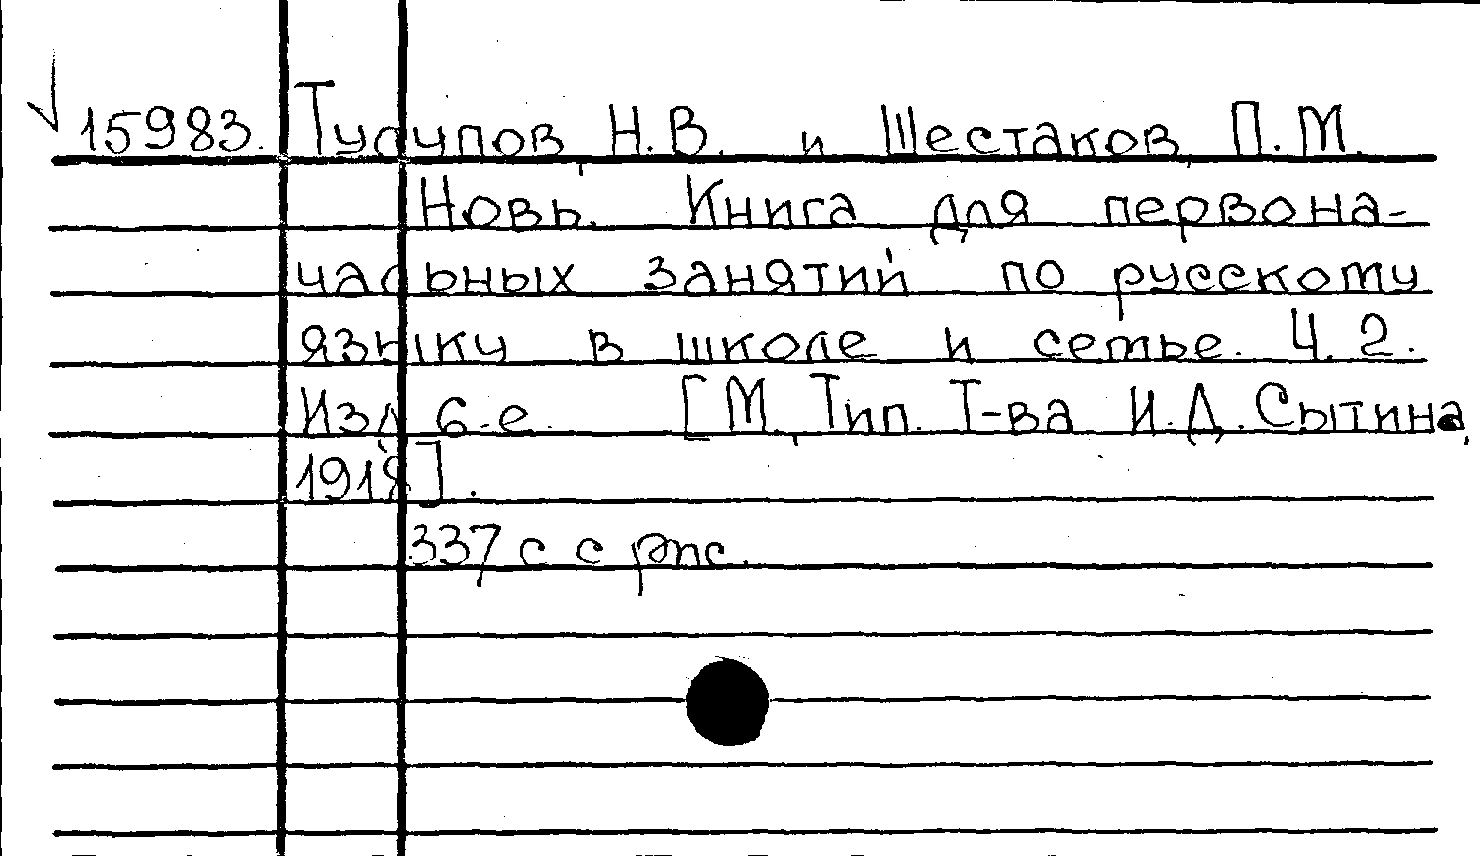 15983. Тулупов, Н.В. и Шестаков, П.М.
Новь. Книга для первона-
чальных занятий по русскому
языку в школе и семье. Ч. 2.
Изд. 6-е. [М., Тип. Т-ва И.Д. Сытина,
1918].
337 с. с рис.